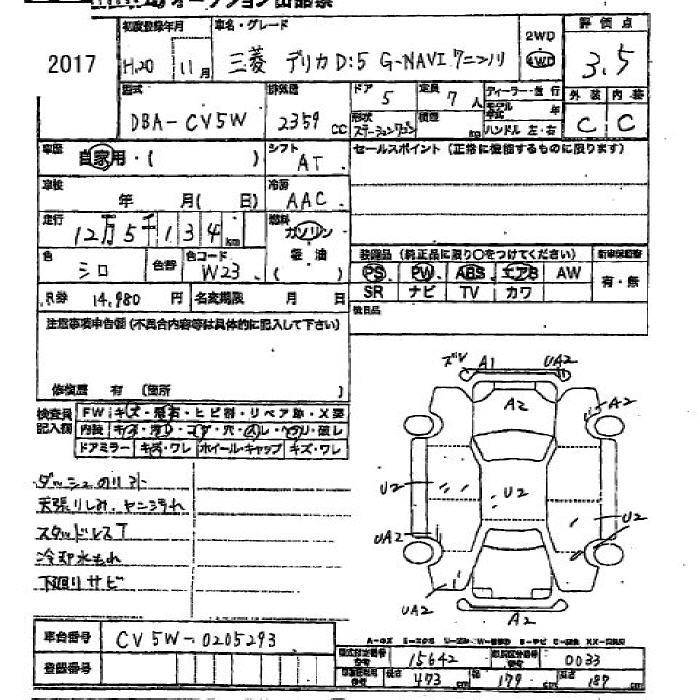 オークション出品票
2017
初度登録年月 車名・グレード
H.20 11月 三菱 デリカ D:5 G-NAVI
2WD
4WD
評価点
3.5
型式 DBA-CV5W
排気量 2359 CC
ドア 5
定員 7人
形状 ステーションワゴン
積載
ディーラー・並行
モデル年式 年
ハンドル 左・右
外装 内装
C C
車歴 自家用・( )
シフト AT
セールスポイント (正常に機能するものに限ります)
車検 年 月( 日)
冷房 AAC
走行 12万5千134km
燃料 ガソリン
軽油
色 シロ
色替
色コード W23
装備品 (純正品に限り○をつけてください)
新車保証書
PS PW ABS エアB AW
SR ナビ TV カワ
有・無
R券 14,980円
名変期限 月 日
後日品
注意事項申告欄 (不具合内容等は具体的に記入して下さい)
修復歴 有 (箇所 )
検査員記入欄
FW キズ・飛石・ヒビ割・リペア跡・X要
ドアミラー キズ・ワレ ホイール・キャップ キズ・ワレ
ダッシュのり汁
天張りしみ、ヤニヨゴレ
スタッドレスT
冷却水もれ
下廻りサビ
ズレ A1 UA2
A2
A2
U2
U2
U2
UA2
UA2
A2
車台番号 CV5W-0205293
登録番号
型式指定番号 15642
類別区分番号 0033
長さ 473 cm
幅 179 cm
高さ 187 cm